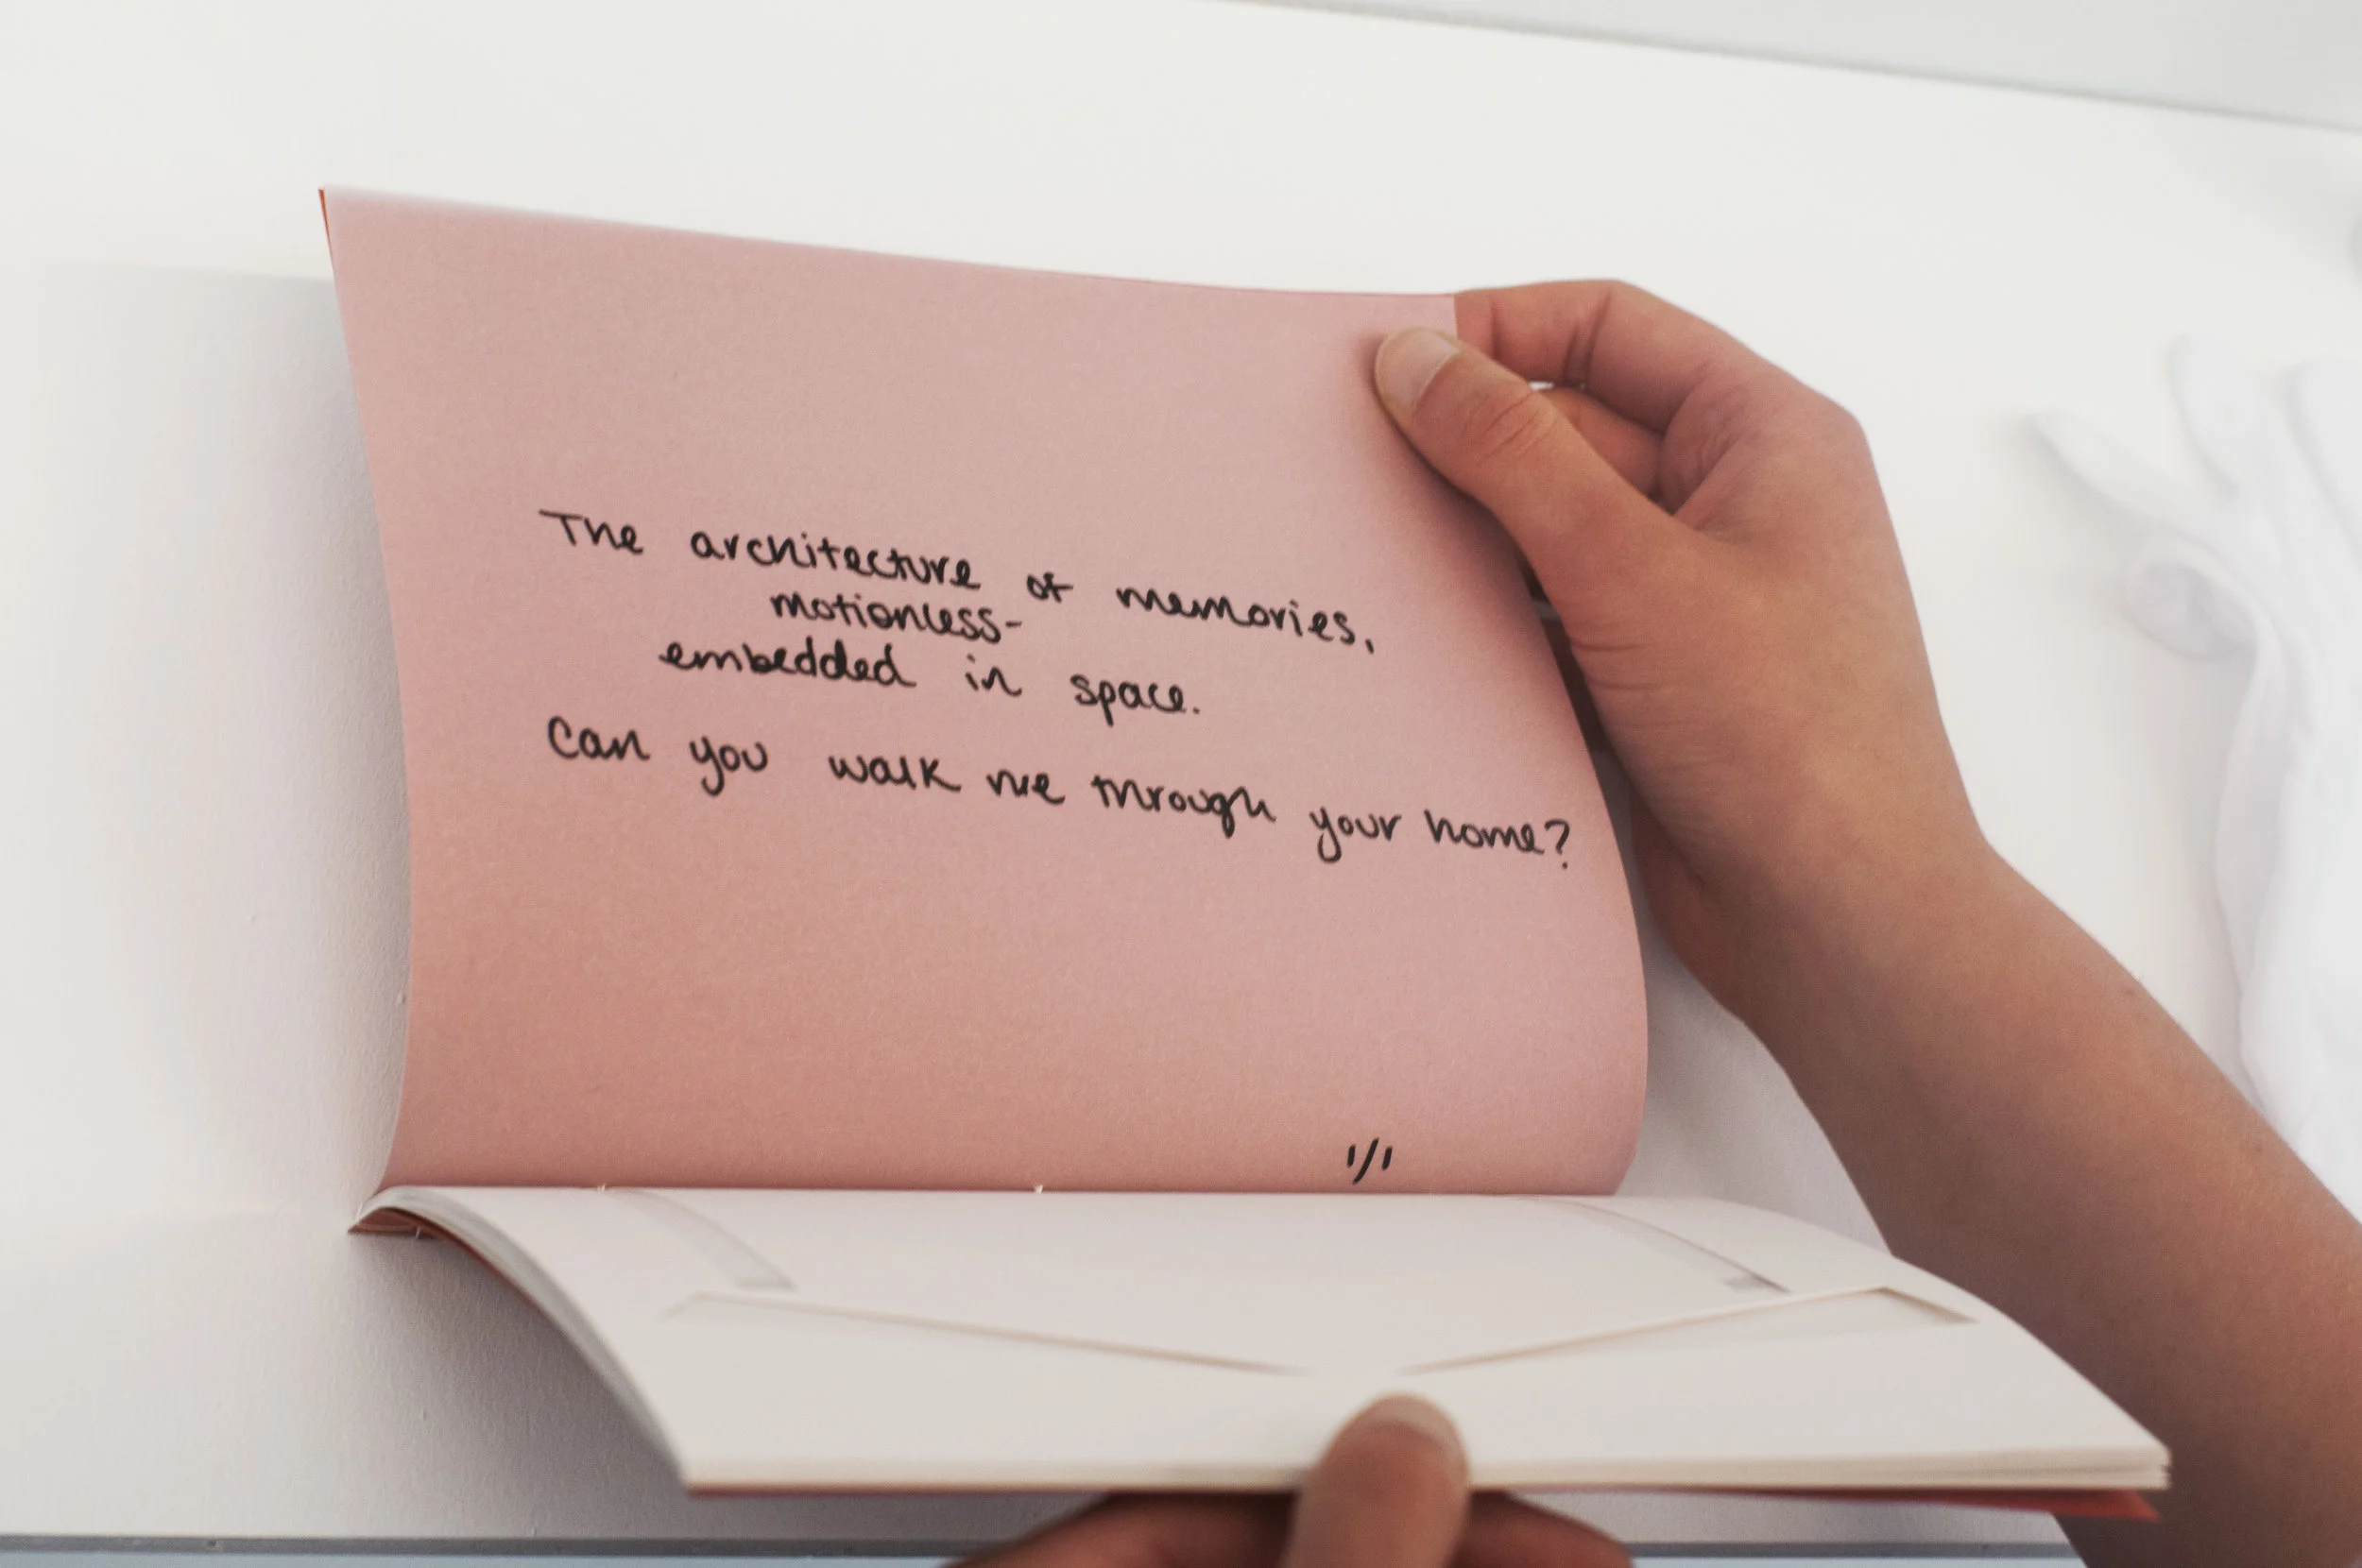 The architecture of memories,
motionless-
embedded in space.
Can you walk me through your home?
1/1